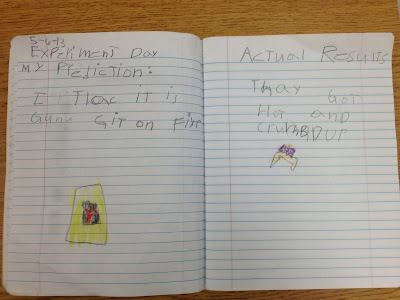 5-6-13
Experiment Day
My Prediction:
I thac it is
Gunu Git on Fire
Actual Results
Thay Got
Hot and
crumBDUP